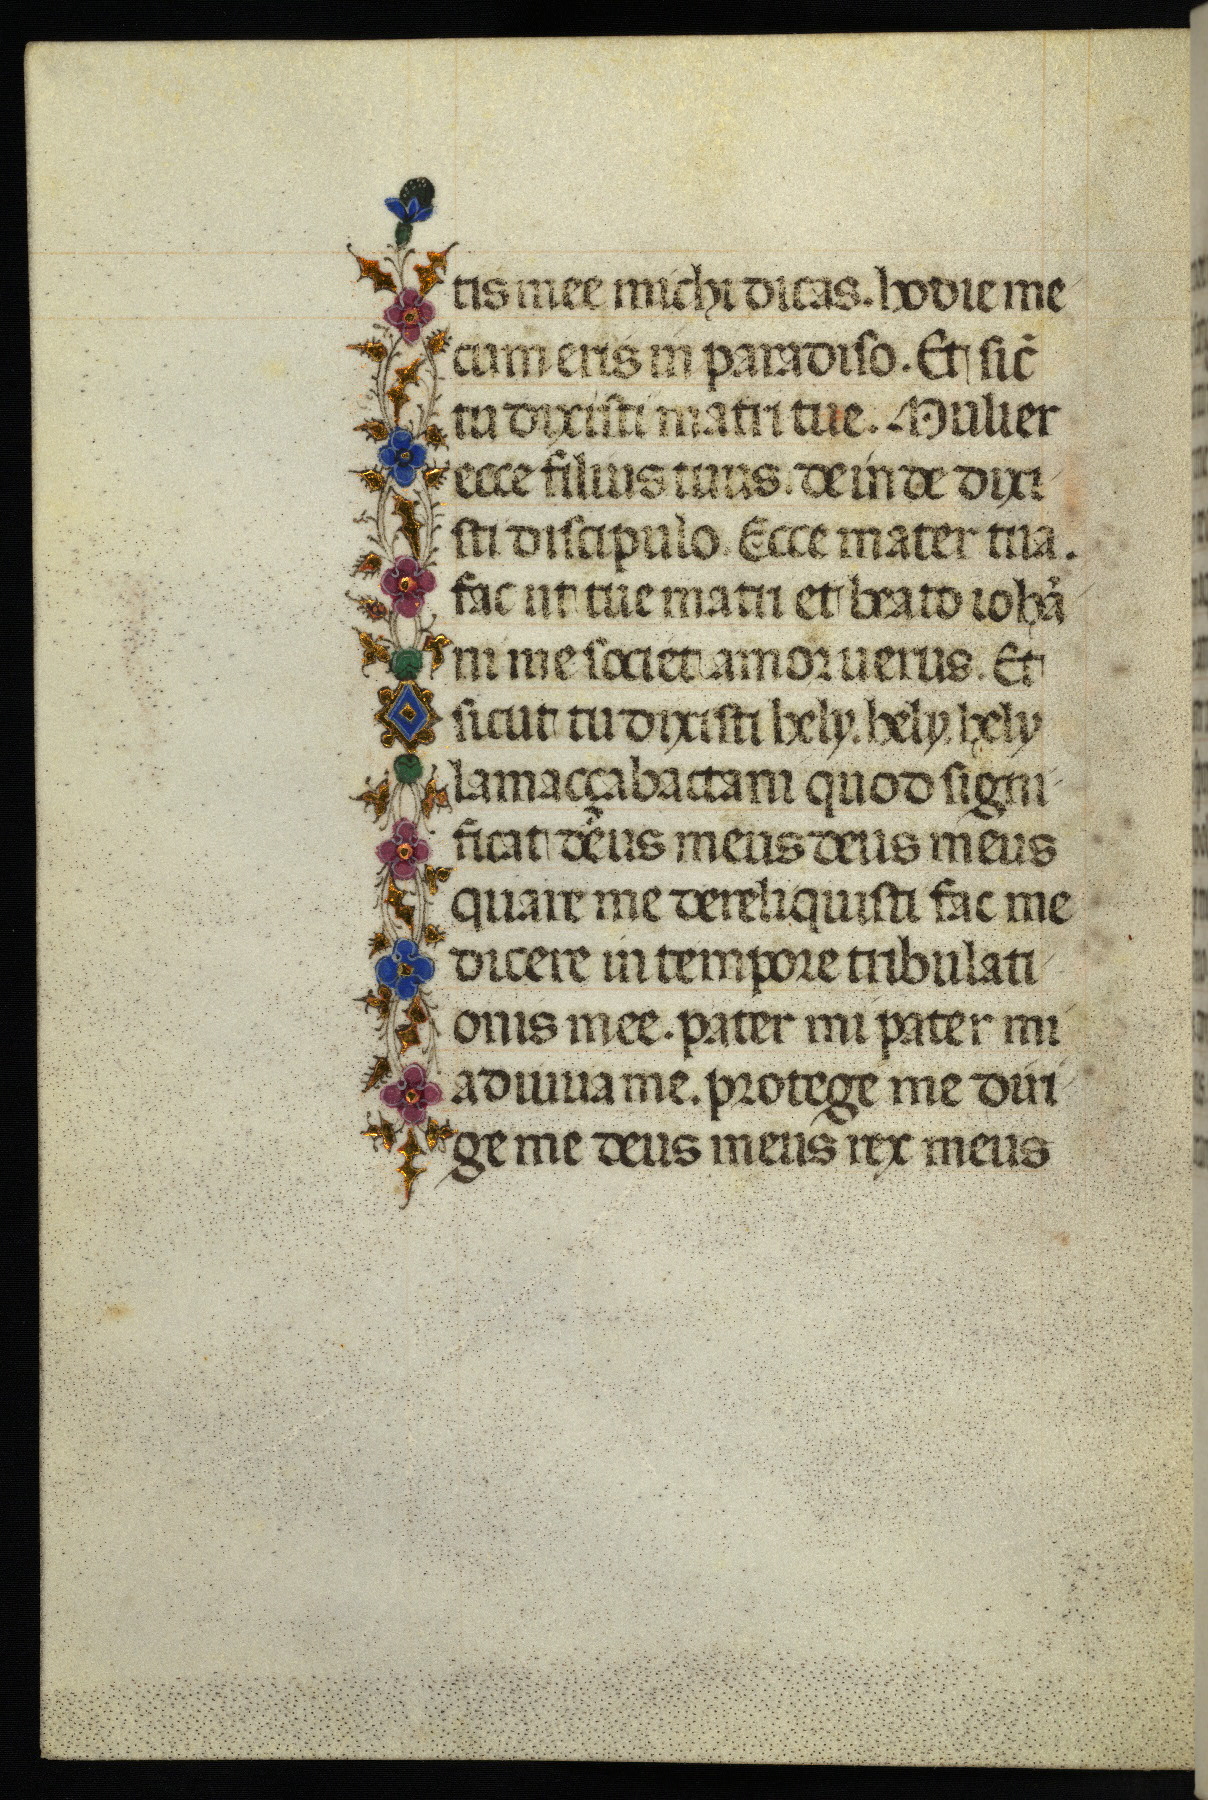 tis mee michi dicas. hodie me
cum eris in paradiso. Et sic̄
tu dixisti matri tue. Mulier
ecce filius tuus. deinde dixi
sti discipulo. Ecce mater tua.
fac ut tue matri et beato iohā
ni me societ amor uerus. Et
sicut tu dixisti hely. hely. hely
lamaççabactani quod signi
ficat deus meus deus meus
quare me dereliquisti fac me
dicere in tempore tribulati
onis mee. pater mi pater mi
adiuua me. protege me diri
ge me deus meus rex meus